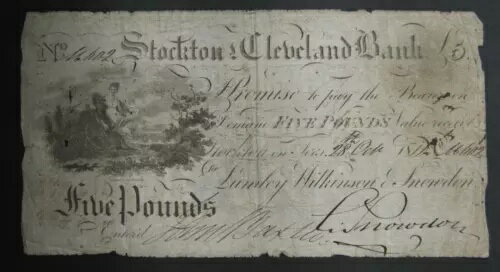 No Stockton & Cleveland Bank £5
I Promise to pay the Bearer on
Demand FIVE POUNDS Value received
Stockton on Tees 28 Oct
For Lumley Wilkinson & Snowdon
Five Pounds
Entd
Snowdon